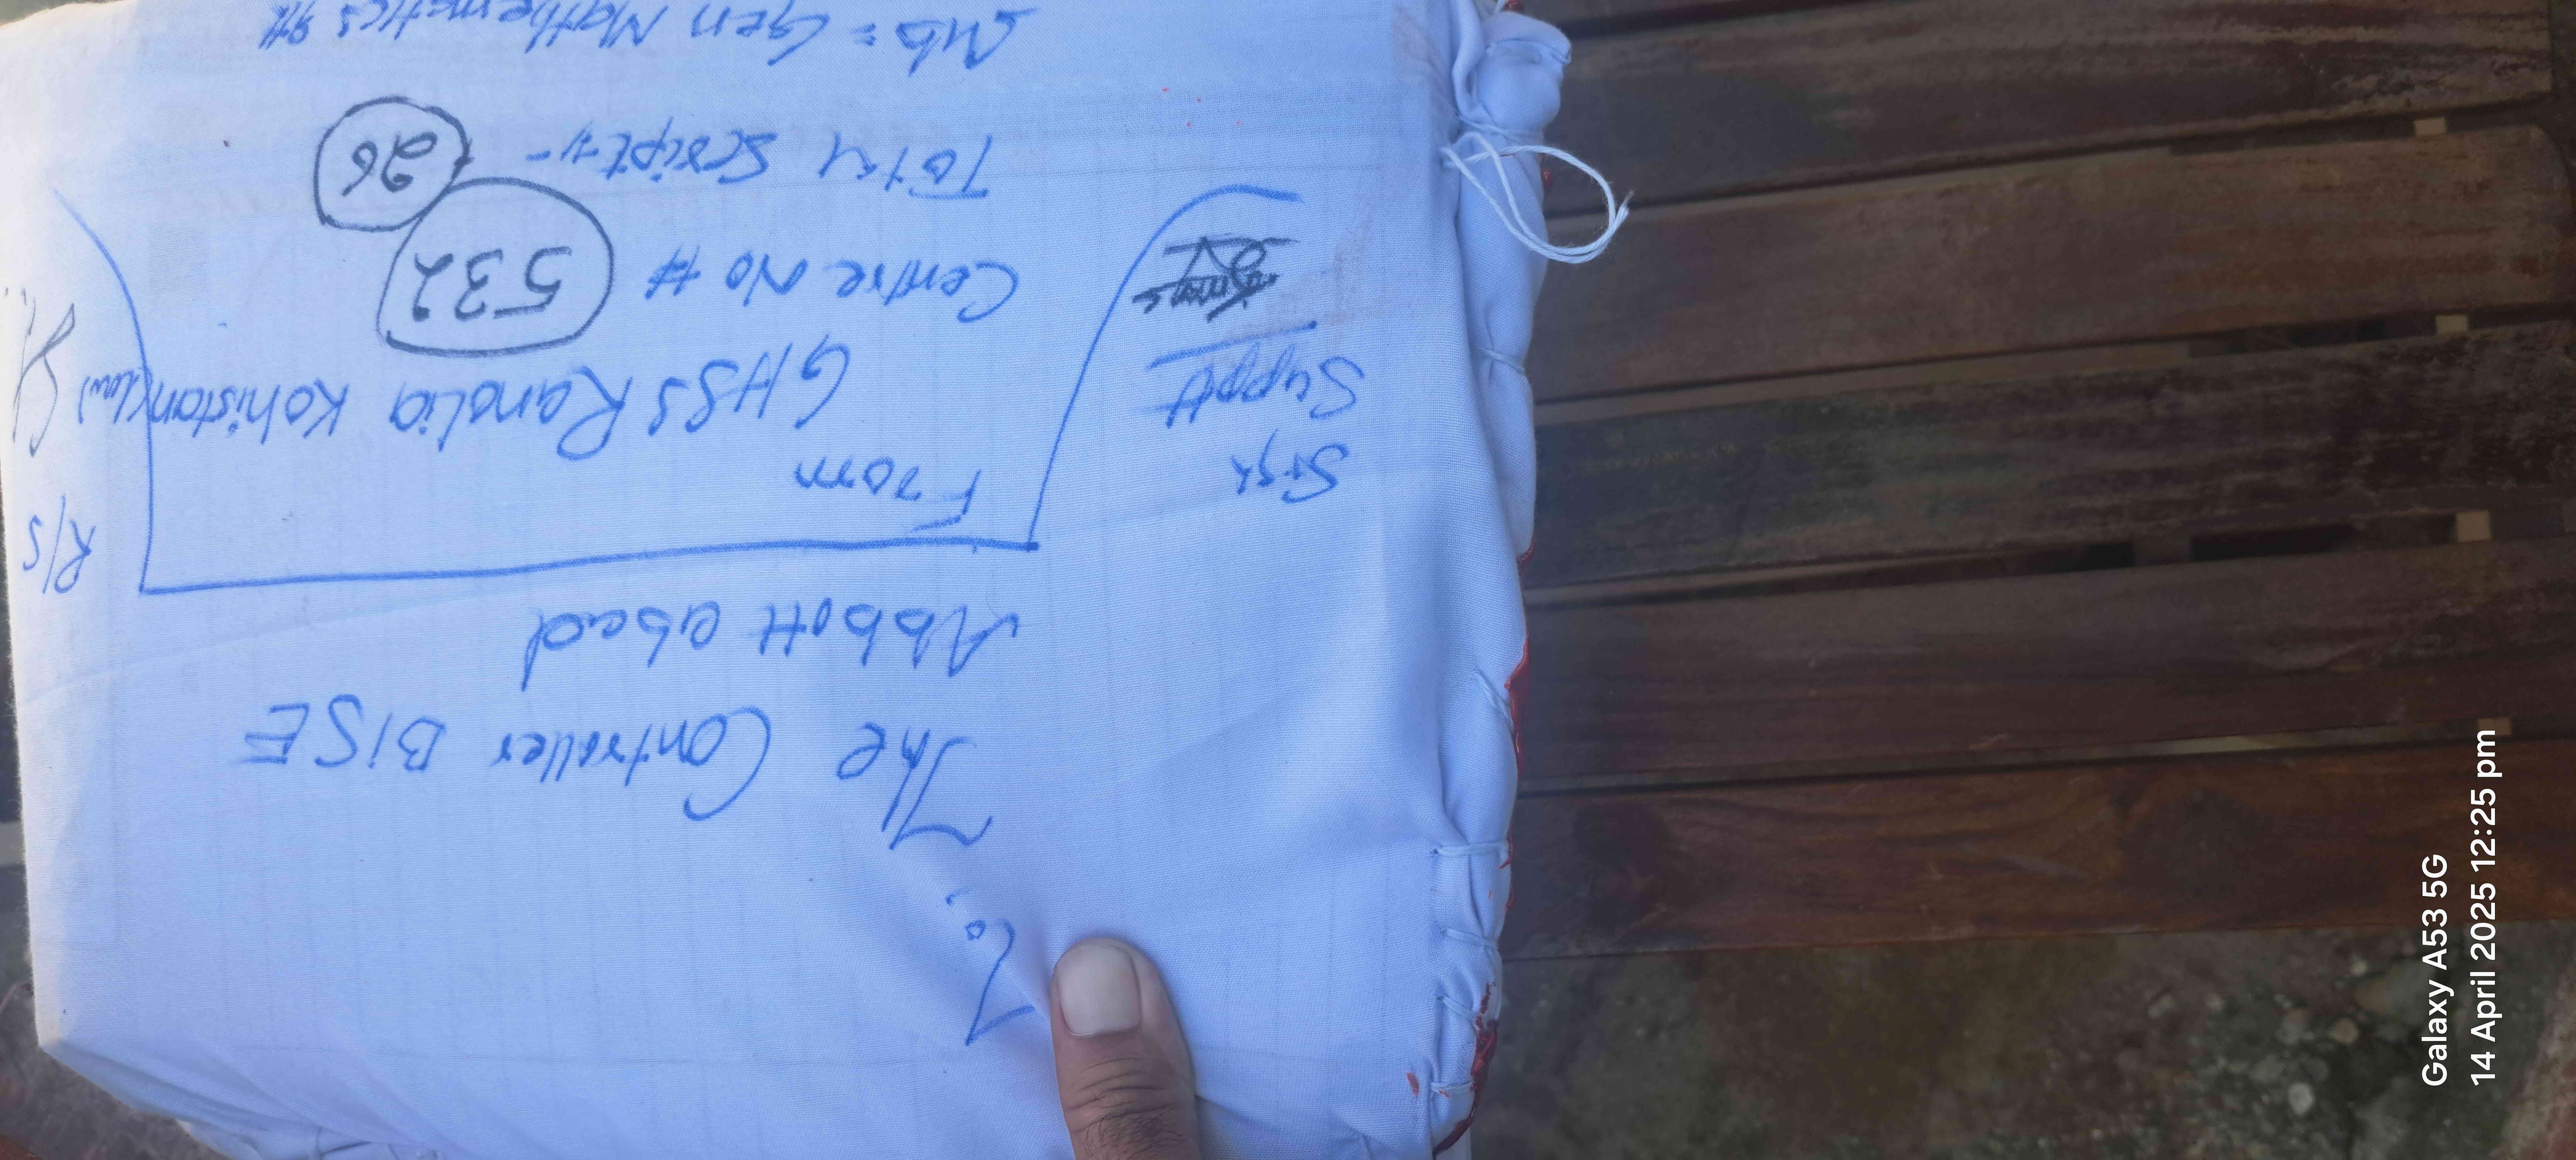 To,
The Controller BISE
Abbott abad
From
GHSS Ranolia Kohistan (Low)
Centre No # 532
Total Script :- 26
Sub = Gen Mathematics 9th
Sign
Suppt
R/S
Galaxy A53 5G
14 April 2025 12:25 pm